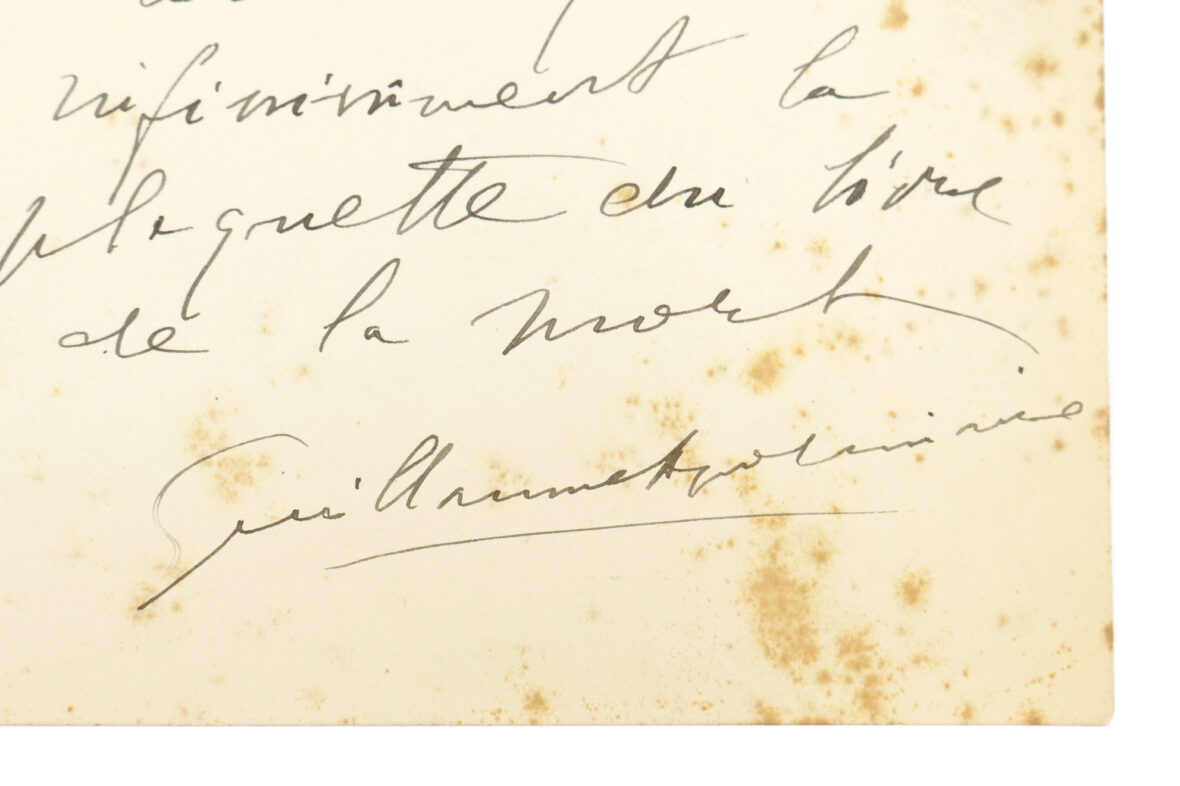 infiniment la
plaquette du livre
de la mort
Guillaume Apollinaire